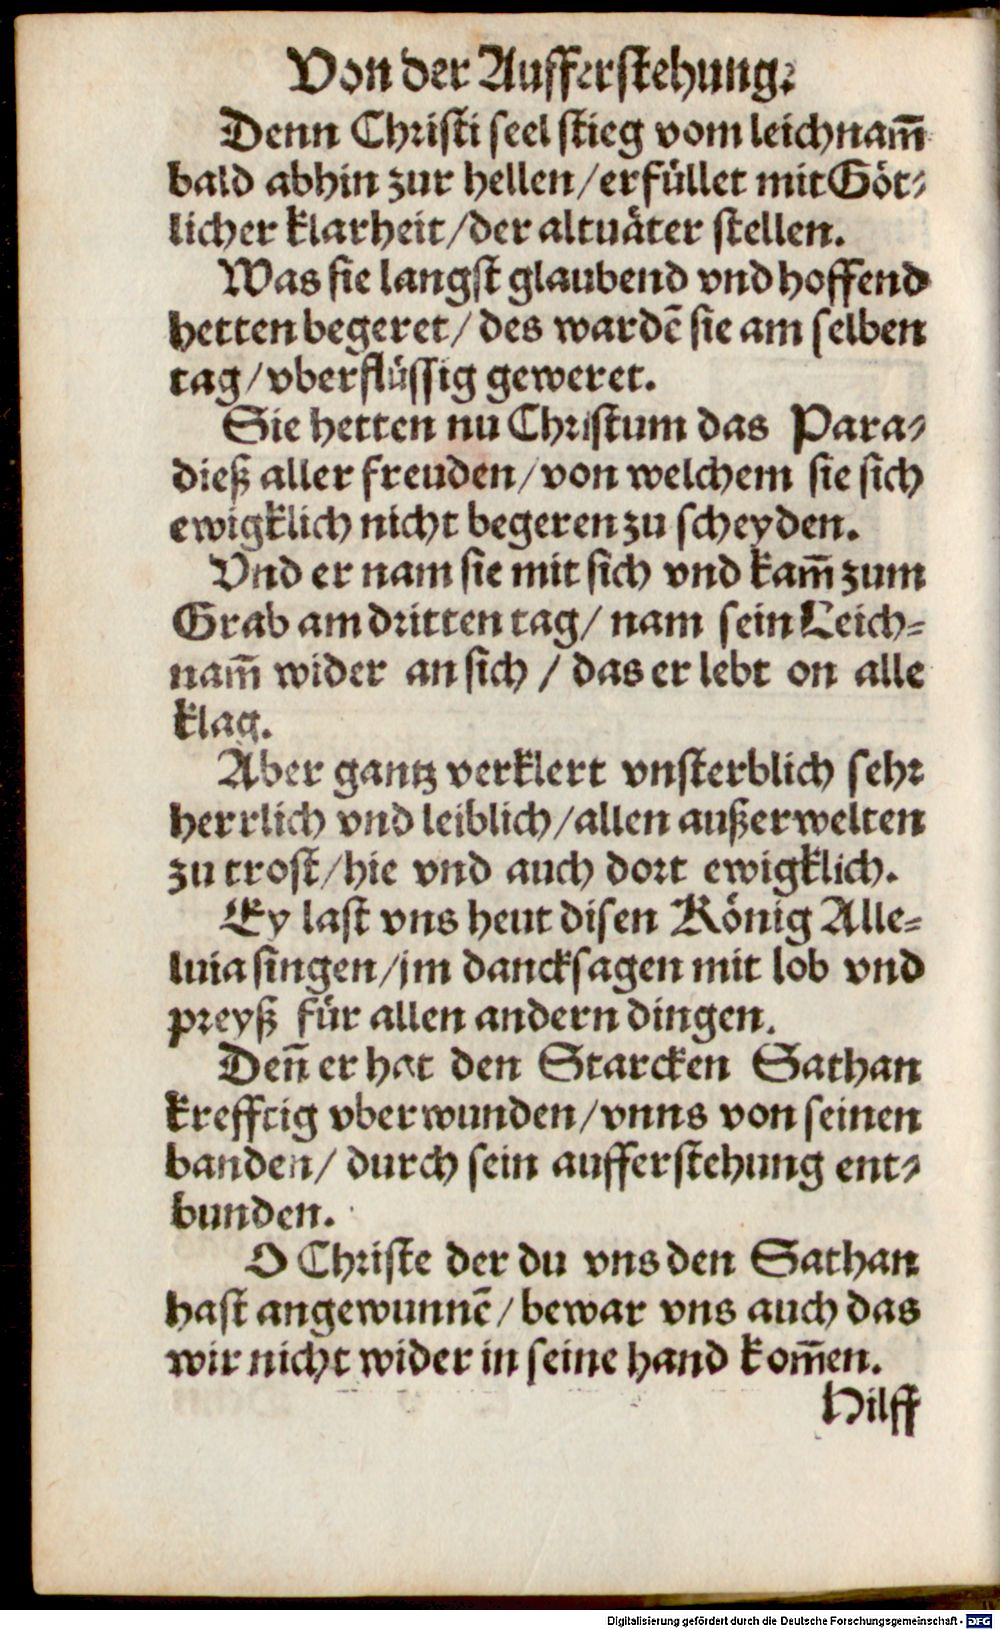 Von der Aufferstehung.
Denn Christi seel stieg vom leichnam̄
bald abhin zur hellen/erfüllet mit Göt⸗
licher klarheit/der altuäter stellen.
Was sie langst glaubend vnd hoffend
hetten begeret/ des wardē sie am selben
tag/vberflüssig geweret.
Sie hetten nu Christum das Para⸗
dieß aller freuden/von welchem sie sich
ewigklich nicht begeren zu scheyden.
Vnd er nam sie mit sich vnd kam̄ zum
Grab am dritten tag/ nam sein Leich⸗
nam̄ wider an sich / das er lebt on alle
klag.
Aber gantz verklert vnsterblich sehr
herrlich vnd leiblich/allen außerwelten
zu trost/hie vnd auch dort ewigklich.
Ey last vns heut disen König Alle⸗
luia singen/jm dancksagen mit lob vnd
preyß für allen andern dingen.
Den̄ er hat den Starcken Sathan
krefftig vberwunden/vnns von seinen
banden/ durch sein aufferstehung ent⸗
bunden.
O Christe der du vns den Sathan
hast angewunnē/bewar vns auch das
wir nicht wider in seine hand kom̄en.
Hilff
Digitalisierung gefördert durch die Deutsche Forschungsgemeinschaft - DFG